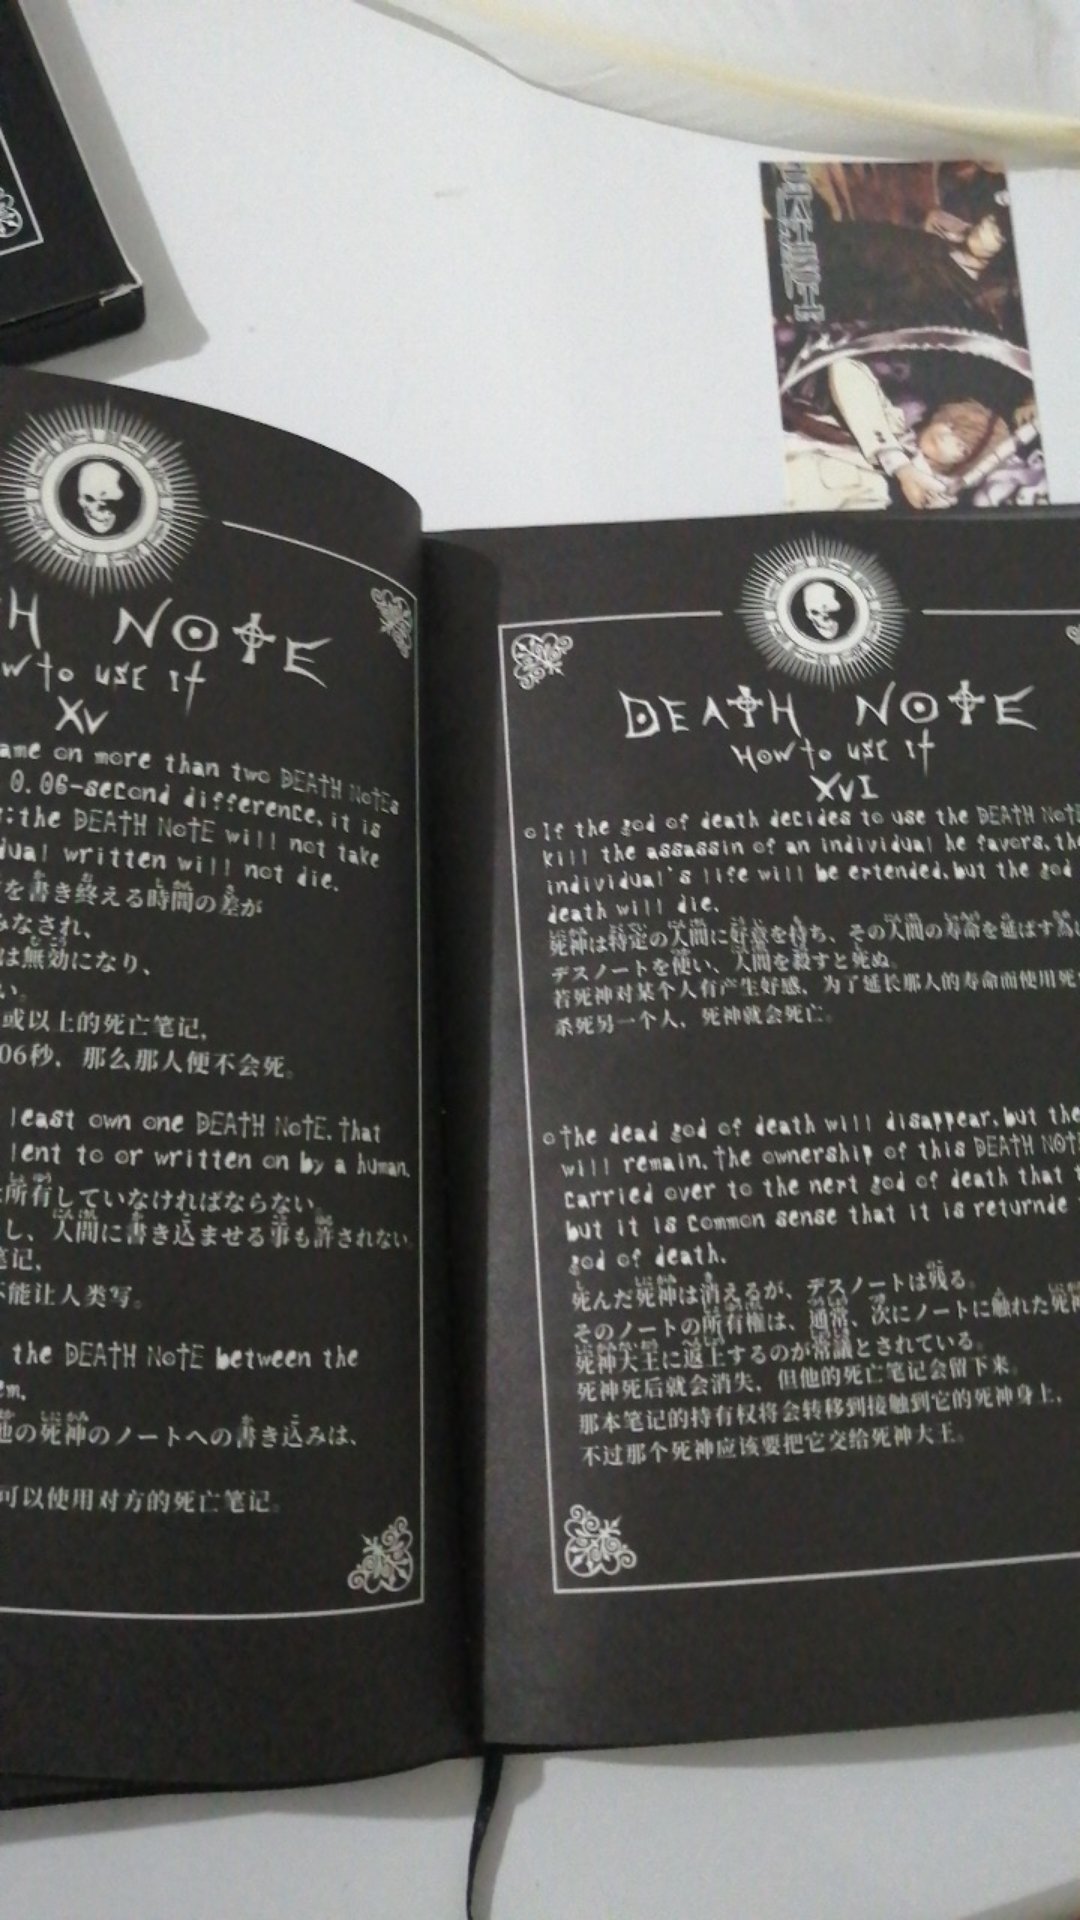 NOTE
to use it
XV
ame on more than two DEATH NOTEs
0.06-second difference, it is
the DEATH NOTE will not take
dual written will not die.
を書き終える時間の差が
みなされ、
は無効になり、
い。
或以上的死亡笔记,
06秒, 那么那人便不会死。
least own one DEATH NOTE. that
lent to or written on by a human.
所有していなければならない。
し、人間に書き込ませる事も許されない。
笔记,
不能让人类写。
the DEATH NOTE between the
em.
他の死神のノートへの書き込みは、
可以使用对方的死亡笔记。
DEATH NOTE
How to use it
XVI
If the god of death decides to use the DEATH NOTE
kill the assassin of an individual he favors, the
individual's life will be extended, but the god
death will die.
死神は特定の人間に好意を持ち、その人間の寿命を延ばす為に
デスノートを使い、人間を殺すと死ぬ。
若死神对某个人有产生好感, 为了延长那人的寿命而使用死
杀死另一个人, 死神就会死亡。
the dead god of death will disappear, but the
will remain. the ownership of this DEATH NOTE
carried over to the next god of death that
but it is common sense that it is returnde
god of death.
死んだ死神は消えるが、デスノートは残る。
そのノートの所有権は、通常、次にノートに触れた死神
死神大王に返上するのが常識とされている。
死神死后就会消失, 但他的死亡笔记会留下来。
那本笔记的持有权将会转移到接触到它的死神身上,
不过那个死神应该要把它交给死神大王。